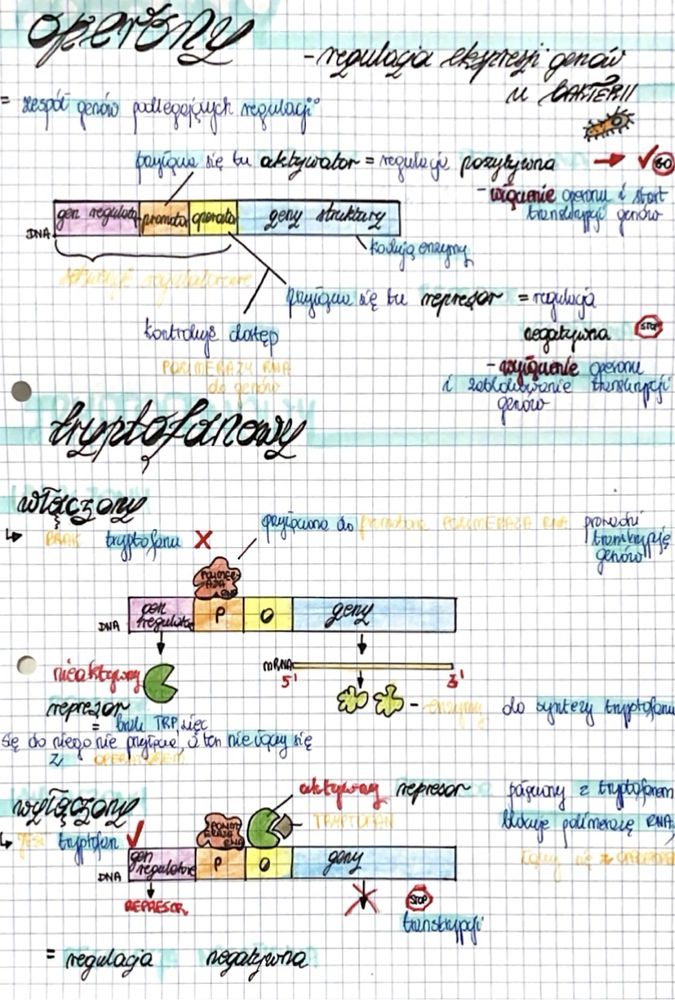 operony
- regulacja ekspresji genów
u BAKTERII
= zespół genów podlegających regulacji
przyłącza się tu aktywator = regulacja pozytywna → ✓ GO
- włączenie operonu i start
transkrypcji genów
DNA gen regulator promotor operator geny struktury
kodują enzymy
sekwencje regulatorowe
przyłącza się tu represor = regulacja
negatywna STOP
kontroluje dostęp
POLIMERAZY RNA
do genów
- wyłączenie operonu
i zablokowanie transkrypcji
genów
tryptofanowy
włączony
↳ BRAK tryptofanu X
przyłączona do promotora POLIMERAZA RNA prowadzi
transkrypcję
genów
POLIMERAZA RNA
DNA gen regulator P O geny
nieaktywny
represor
mRNA
5' 3'
- enzymy do syntezy tryptofanu
= brak TRP, więc
się do niego nie przyłącza, a ten nie łączy się
z OPERATOREM
wyłączony
↳ JEST tryptofan ✓
aktywny represor połączony z tryptofanem
TRYPTOFAN
blokuje polimerazę RNA,
łączy się z OPERATOREM
POLIMERAZA RNA
DNA gen regulatorowy P O geny
REPRESOR
STOP
transkrypcji
= regulacja negatywna